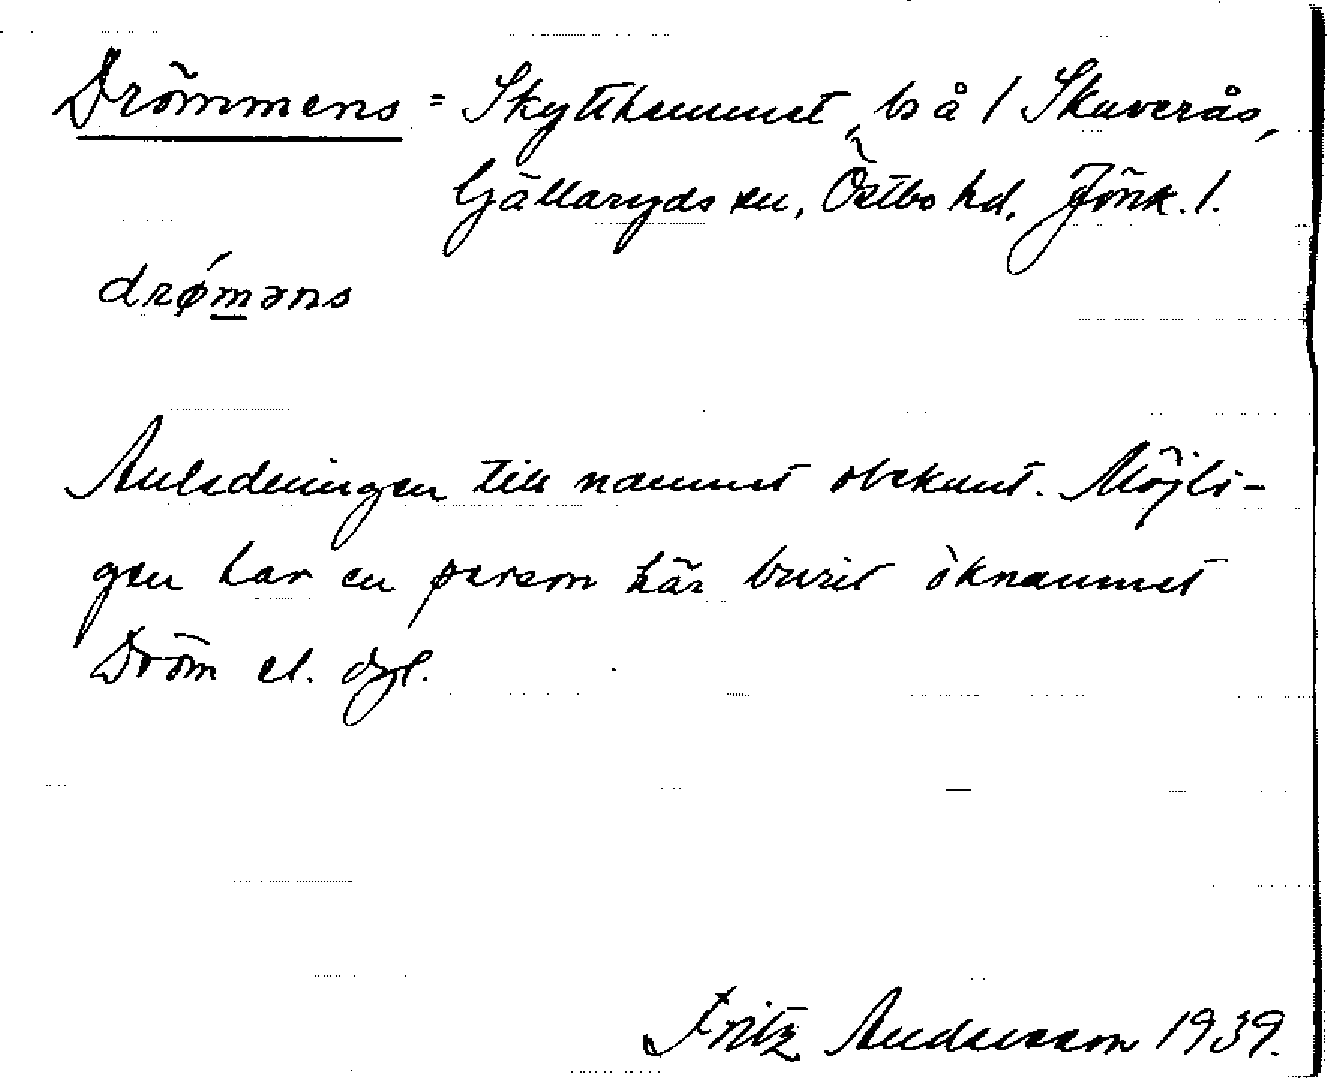 Drömmens = Skytthemmet, bs å / Skaverås,
Gällaryds sn, Östbo hd, Jönk. l.
drǿməns
Anledningen till namnet obekant. Möjli-
gen har en person här burit öknamnet
Dröm el. dyl.
Fritz Andersson 1939.